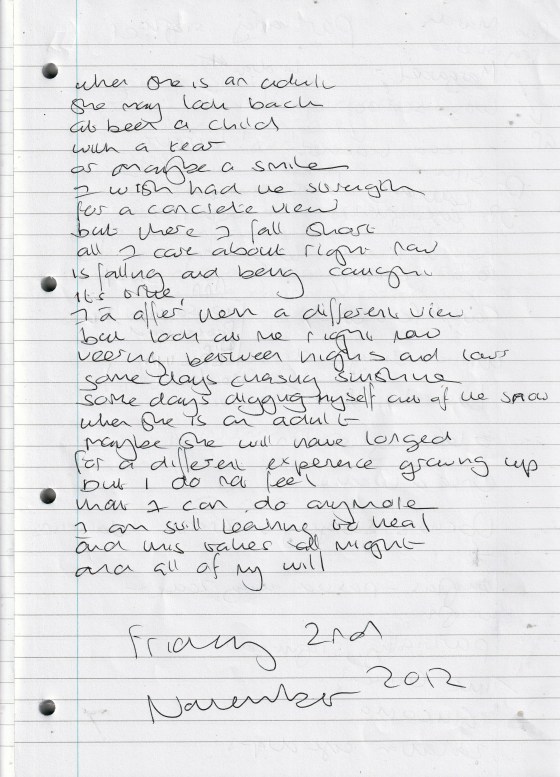 when she is an adult
she may look back
at been a child
with a tear
or maybe a smile
I wish had the strength
for a concrete view
but there I fall short
all I care about right now
is falling and being caught
it's trite,
I'd offer them a different view
but look at me right now
veering between highs and lows
some days chasing sunshine
some days digging myself out of the snow
when she is an adult
maybe she will have longed
for a different experence growing up
but I do not feel
that I can do anymore
I am still learning to heal
and this takes all might
and all of my will
Friday 2nd
November 2012